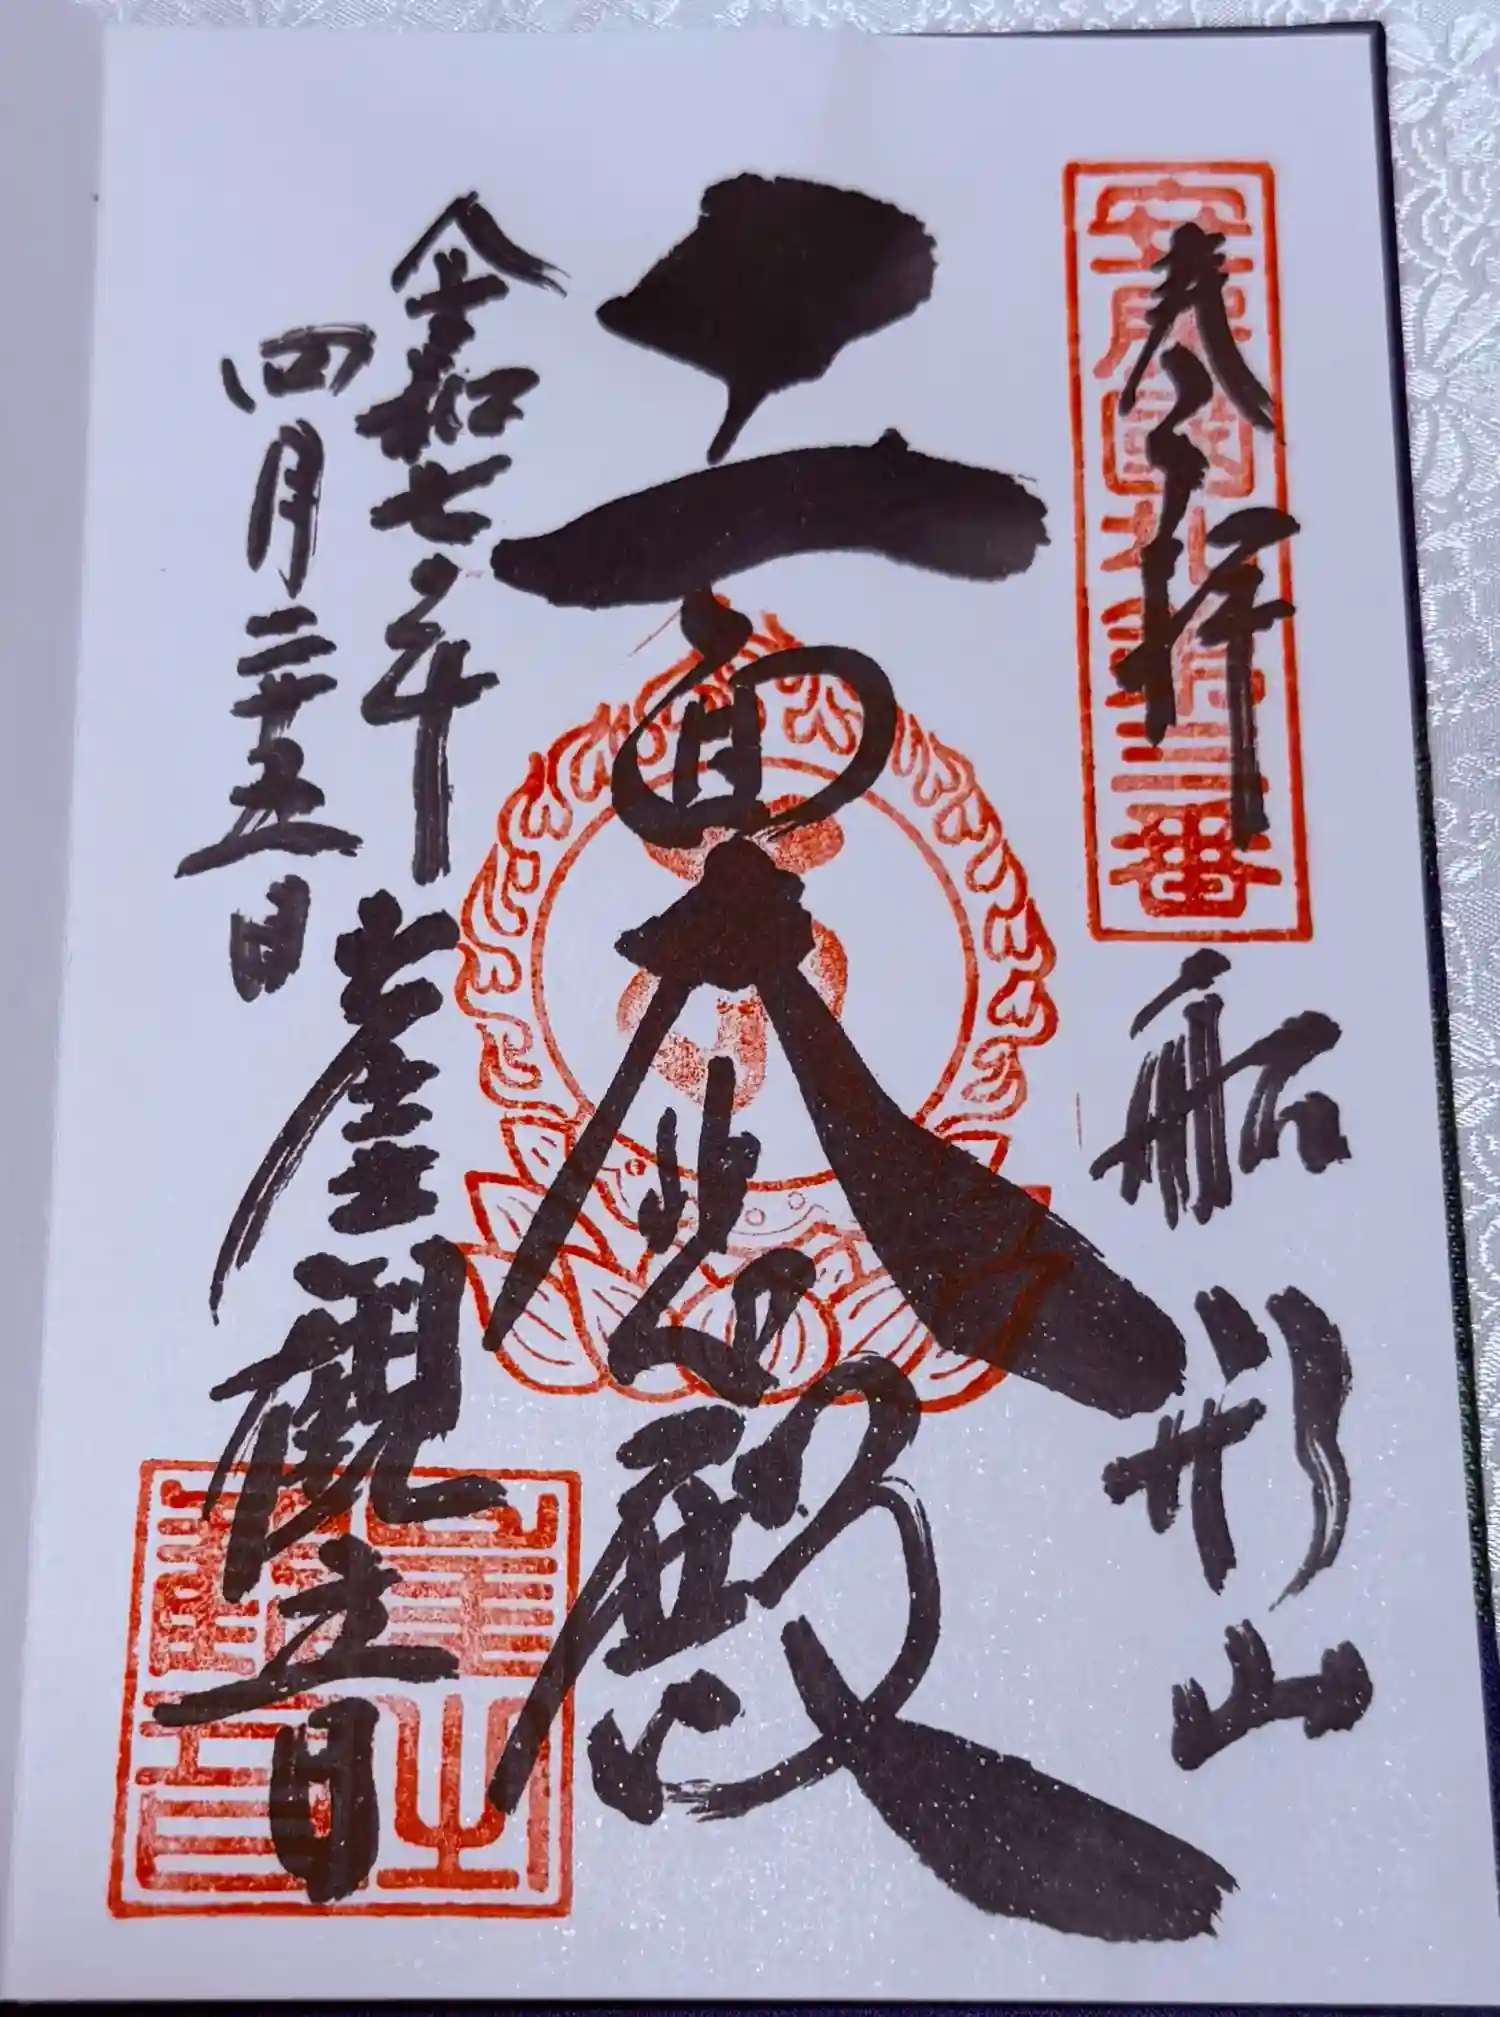 奉拝
船形山
安房國札三番
十一面大悲殿
令和七年
四月二十五日
崖観音
崖之
観音